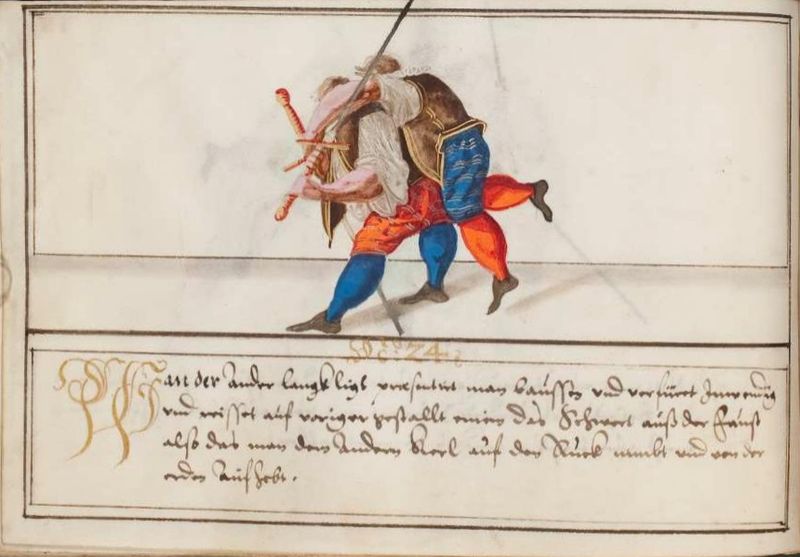 No: 24.
Wan der Ander langk ligt præsentirt man baussen vnd verfüret Inwendig
vnd reisset auf voriger gestallt einem das Schwert auß der Faust
also das man dem Andern Kerl auf den Ruck nimbt vnd von der
erden Aufhebt.